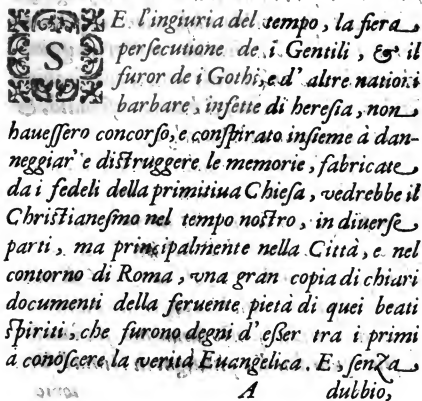 SE l'ingiuria del tempo, la fiera
persecutione de i Gentili, & il
furor de i Gothi, e d' altre nationi
barbare, infette di heresia, non
hauessero concorso, e conspirato insieme à dan-
neggiar' e distruggere le memorie, fabricate
da i fedeli della primitiua Chiesa, vedrebbe il
Christianesmo nel tempo nostro, in diuerse
parti, ma principalmente nella Città, e nel
contorno di Roma, vna gran copia di chiari
documenti della feruente pietà di quei beati
spiriti, che furono degni d' esser tra i primi
à conoscere la verità Euangelica. E, senza
A dubbio,